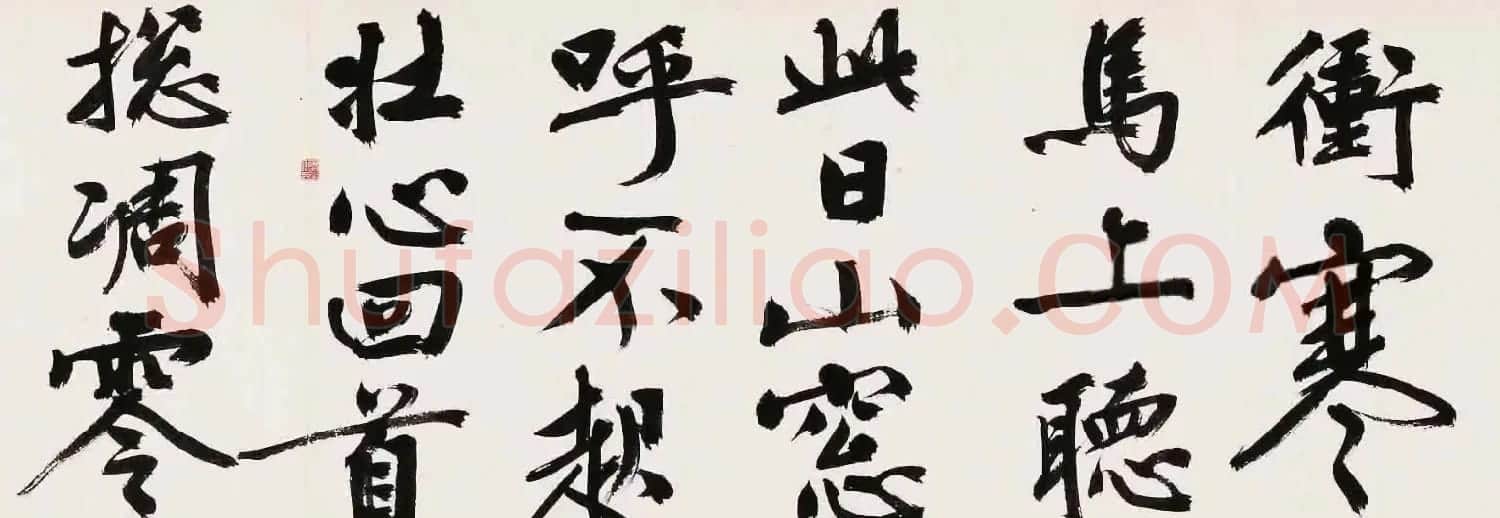 衝寒
馬上聽
此日山窓
呼不起
壮心回首
揔凋零
Shufaziliao.COM